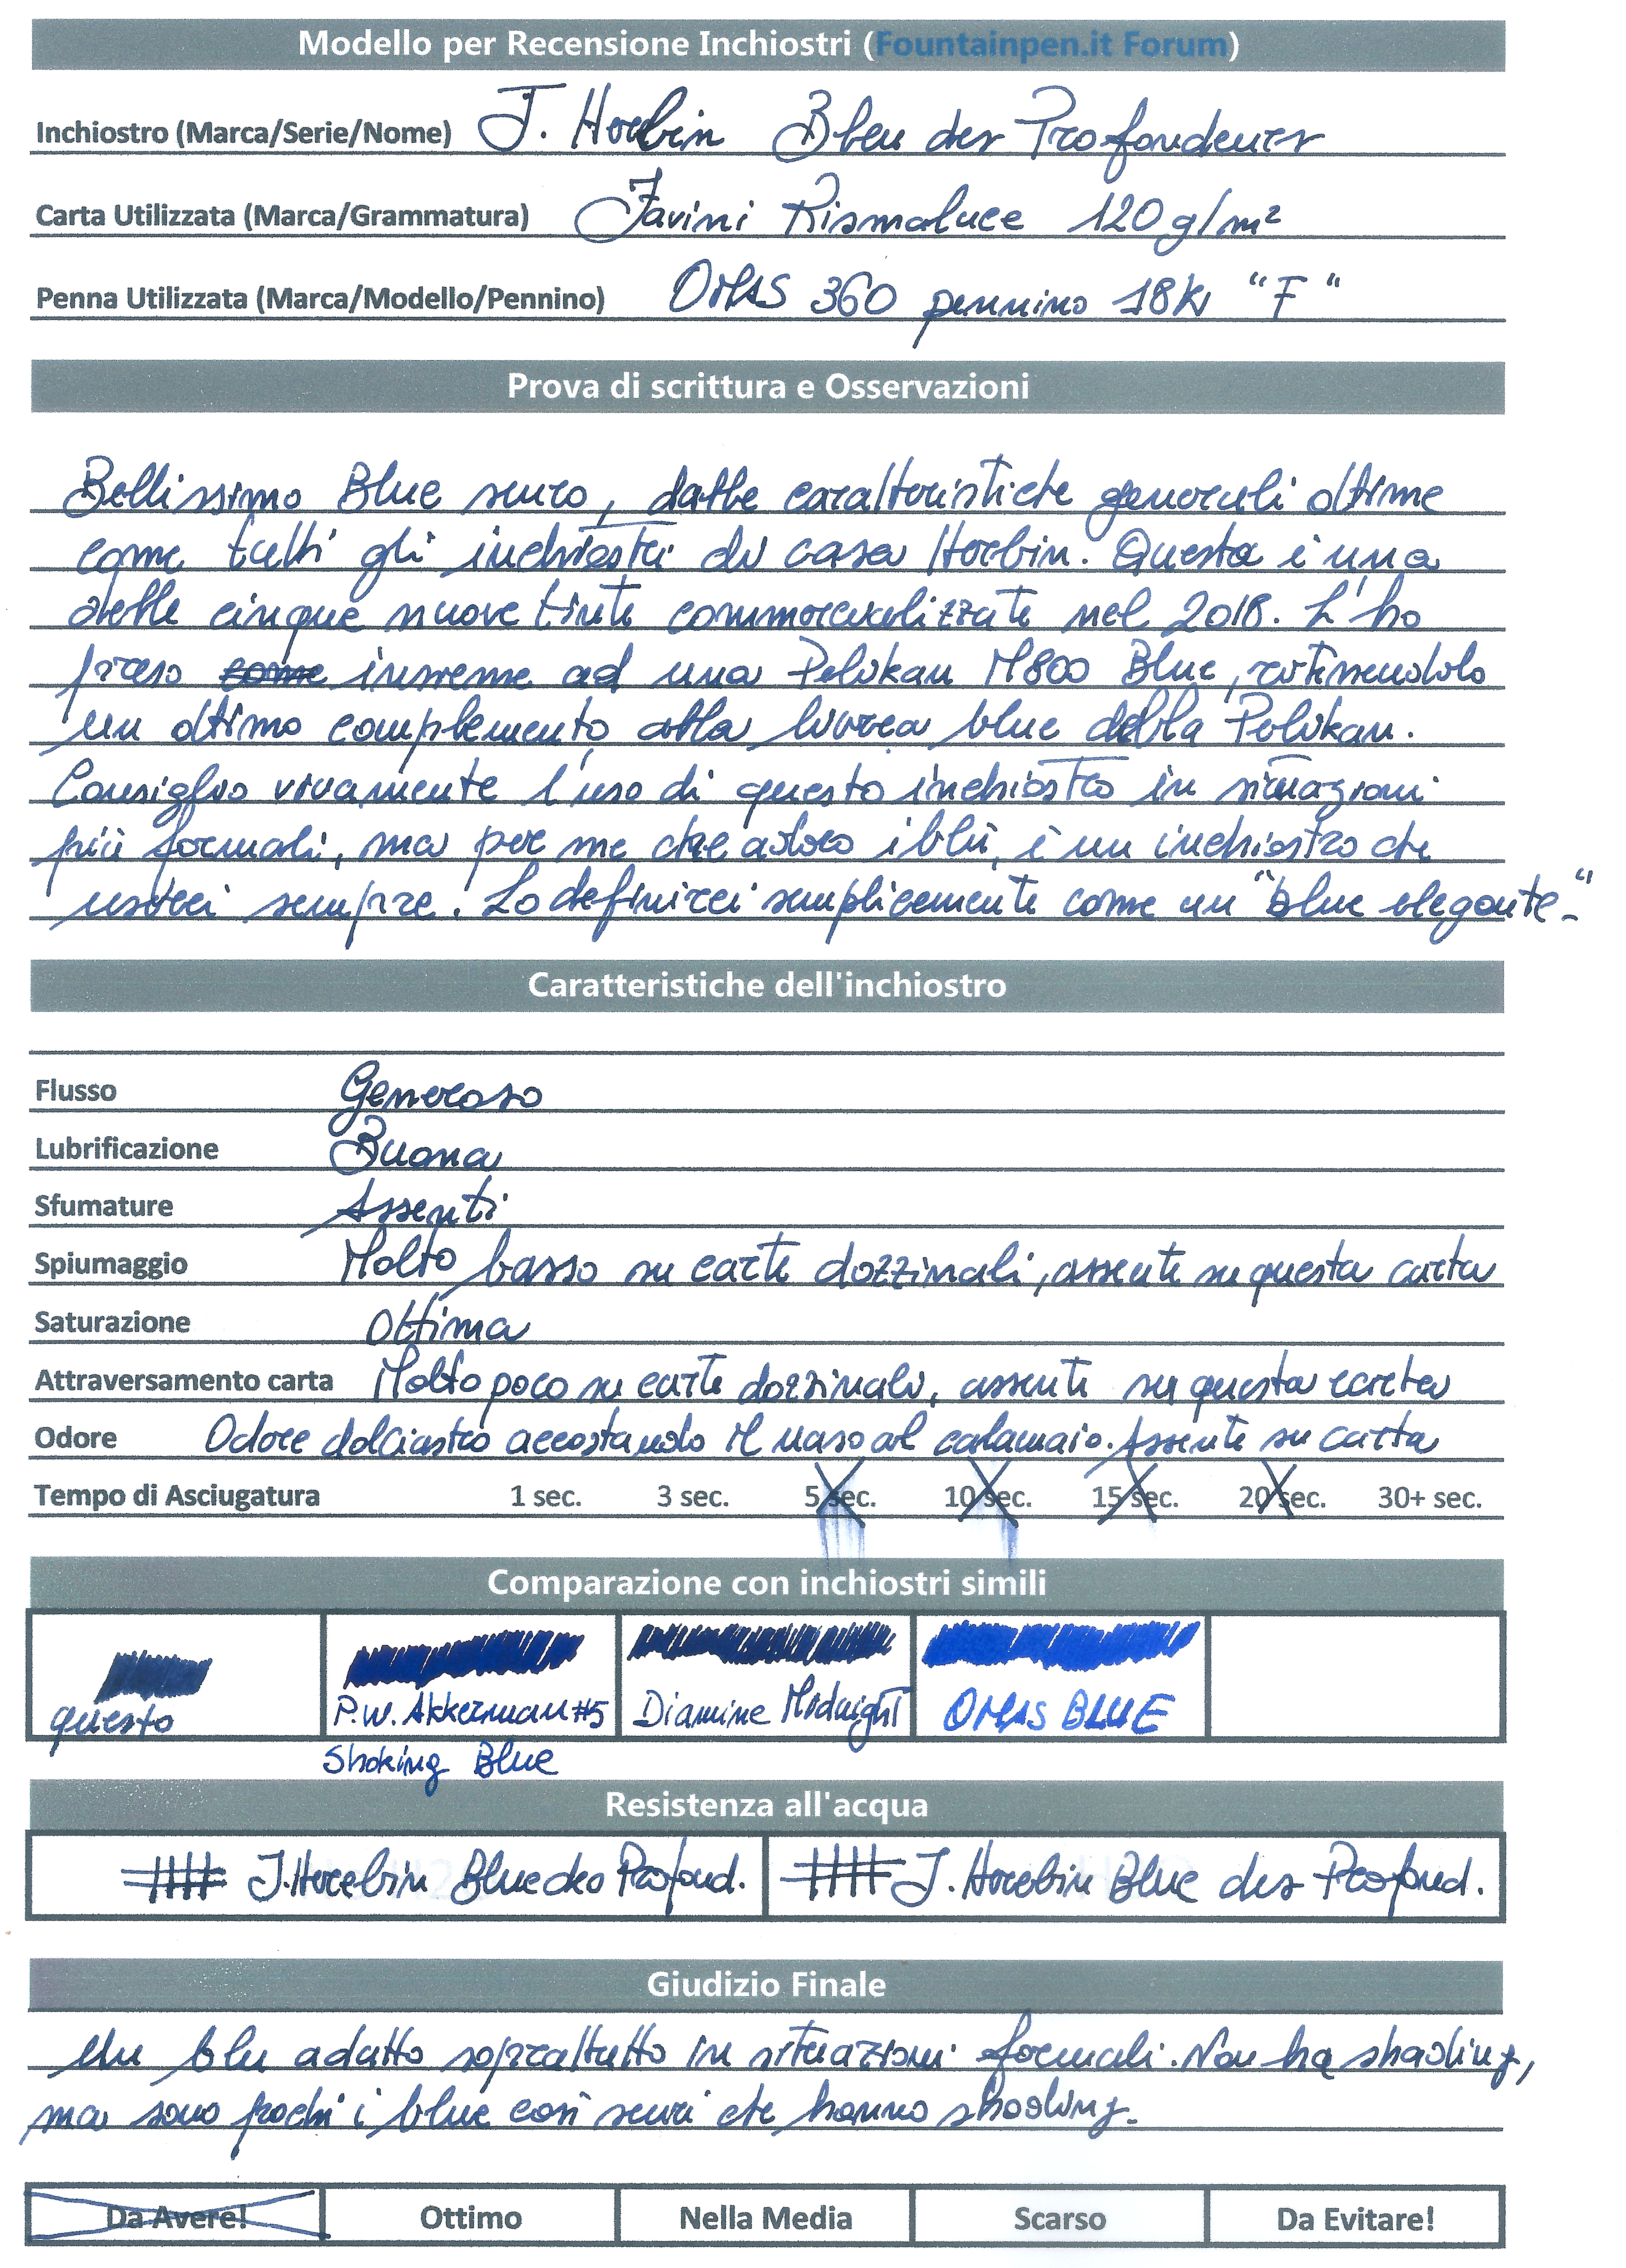 Modello per Recensione Inchiostri (Fountainpen.it Forum)
Inchiostro (Marca/Serie/Nome) J. Herbin Bleu des Profondeurs
Carta Utilizzata (Marca/Grammatura) Favini Rismaluce 120 g/m²
Penna Utilizzata (Marca/Modello/Pennino) OMAS 360 pennino 18K "F"
Prova di scrittura e Osservazioni
Bellissimo Blue scuro, dalle caratteristiche generali ottime
come tutti gli inchiostri di casa Herbin. Questa è una
delle cinque nuove tinte commercializzate nel 2018. L'ho
preso come insieme ad una Pelikan M800 Blue, ritenendolo
un ottimo complemento alla livrea blue della Pelikan.
Consiglio vivamente l'uso di questo inchiostro in situazioni
più formali, ma per me che adoro i blu, è un inchiostro che
userei sempre. Lo definirei semplicemente come un "blue elegante."
Caratteristiche dell'inchiostro
Flusso Generoso
Lubrificazione Buona
Sfumature Assenti
Spiumaggio Molto basso su carte dozzinali, assente su questa carta
Saturazione Ottima
Attraversamento carta Molto poco su carte dozzinali, assente su questa carta
Odore Odore dolciastro accostando il naso al calamaio. Assente su carta
Tempo di Asciugatura 1 sec. 3 sec. 5 sec. 10 sec. 15 sec. 20 sec. 30+ sec.
Comparazione con inchiostri simili
questo P.W. Akkerman #5 Diamine Midnight OMAS BLUE
Shoking Blue
Resistenza all'acqua
J. Herbin Blue des Profond. J. Herbin Blue des Profond.
Giudizio Finale
Un blu adatto soprattutto in situazioni formali. Non ha shading,
ma sono pochi i blue così scuri che hanno shading.
Da Avere! Ottimo Nella Media Scarso Da Evitare!